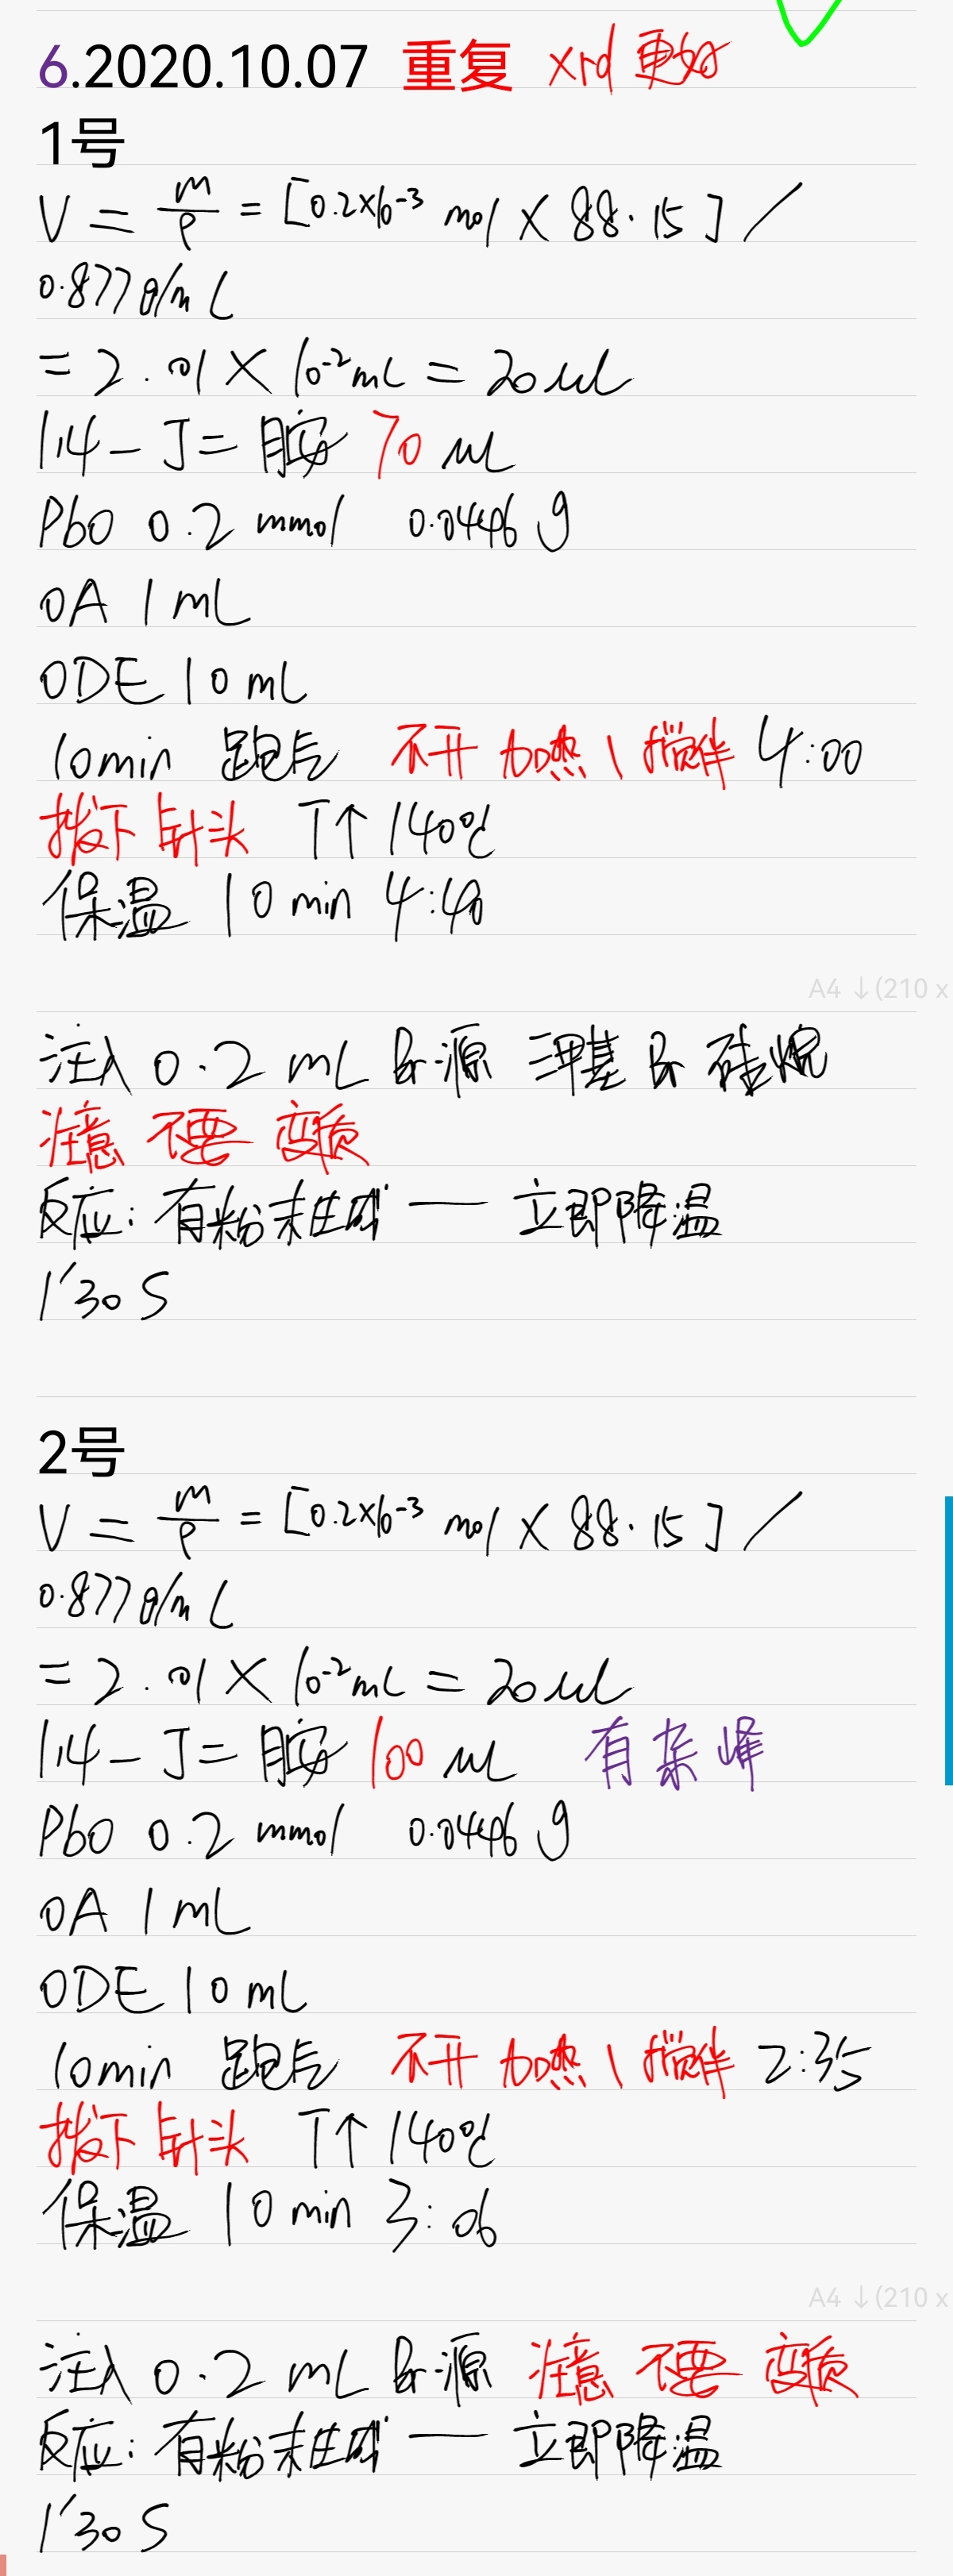 6.2020.10.07 重复 xrd 更好
1号
V = m/ρ = [0.2×10⁻³ mol × 88.15] /
0.877g/mL
= 2.01 × 10⁻²mL = 20 uL
1,4-丁二胺 70 uL
PbO 0.2 mmol 0.0446 g
OA 1 mL
ODE 10 mL
10min 跑气 不开 加热、搅拌 4:00
拔下 针头 T↑ 140℃
保温 10 min 4:40
A4 ↓(210 x
注入 0.2 mL Br源 三甲基 Br 硅烷
注意 不要 变质
反应: 有粉末生成 — 立即降温
1'30 S
2号
V = m/ρ = [0.2×10⁻³ mol × 88.15] /
0.877g/mL
= 2.01 × 10⁻²mL = 20 uL
1,4-丁二胺 100 uL 有杂峰
PbO 0.2 mmol 0.0446 g
OA 1 mL
ODE 10 mL
10min 跑气 不开 加热、搅拌 2:35
拔下 针头 T↑ 140℃
保温 10 min 3:06
A4 ↓(210 x
注入 0.2 mL Br源 注意 不要 变质
反应: 有粉末生成 — 立即降温
1'30 S